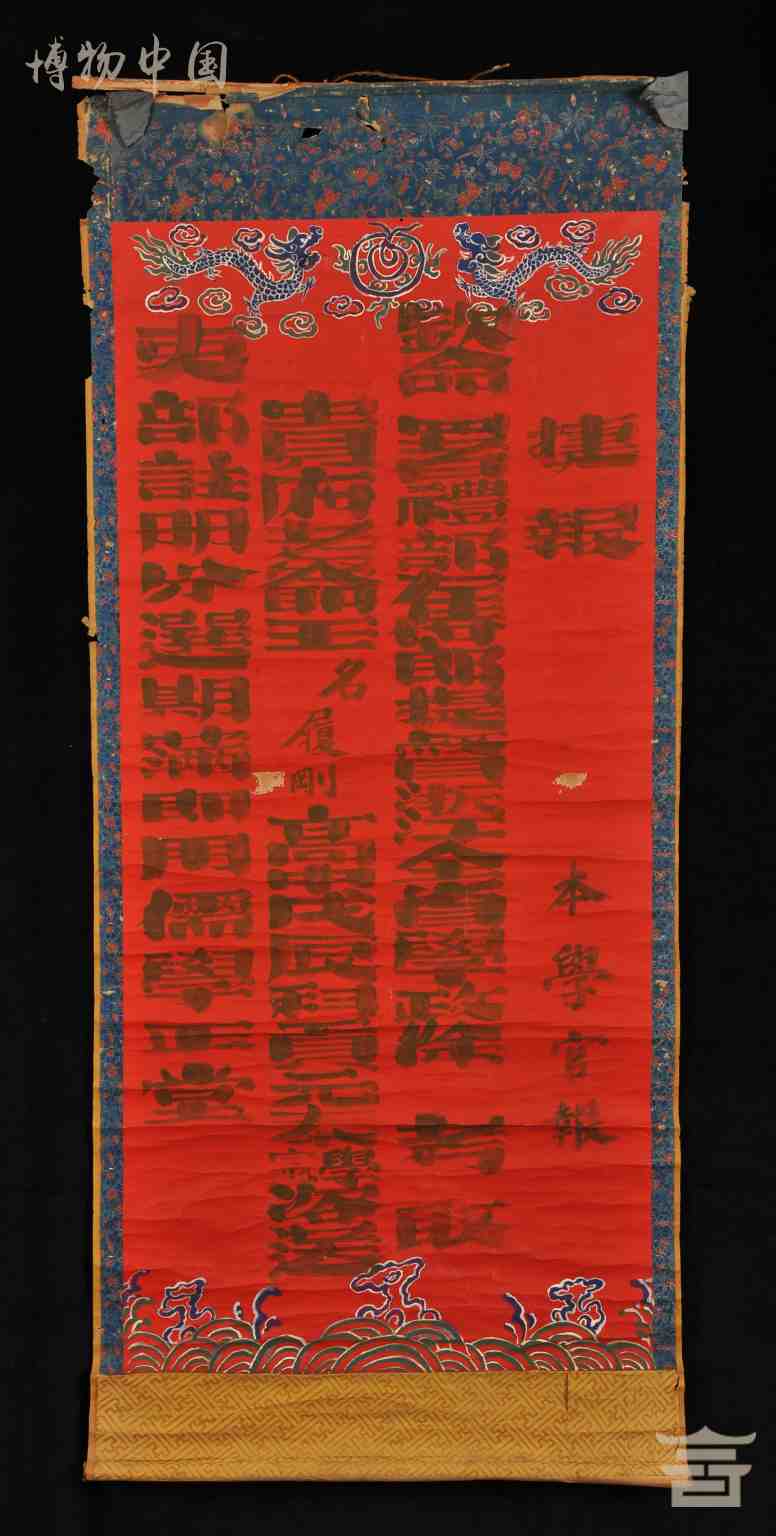 博物中国
捷報 本學官報
欽命 署禮部侍郎提督浙江全省學政徐 考取
貴府老爺王 名履剛 高中戊辰科貢元 學咨選
吏部註明分選期滿即用儒學正堂